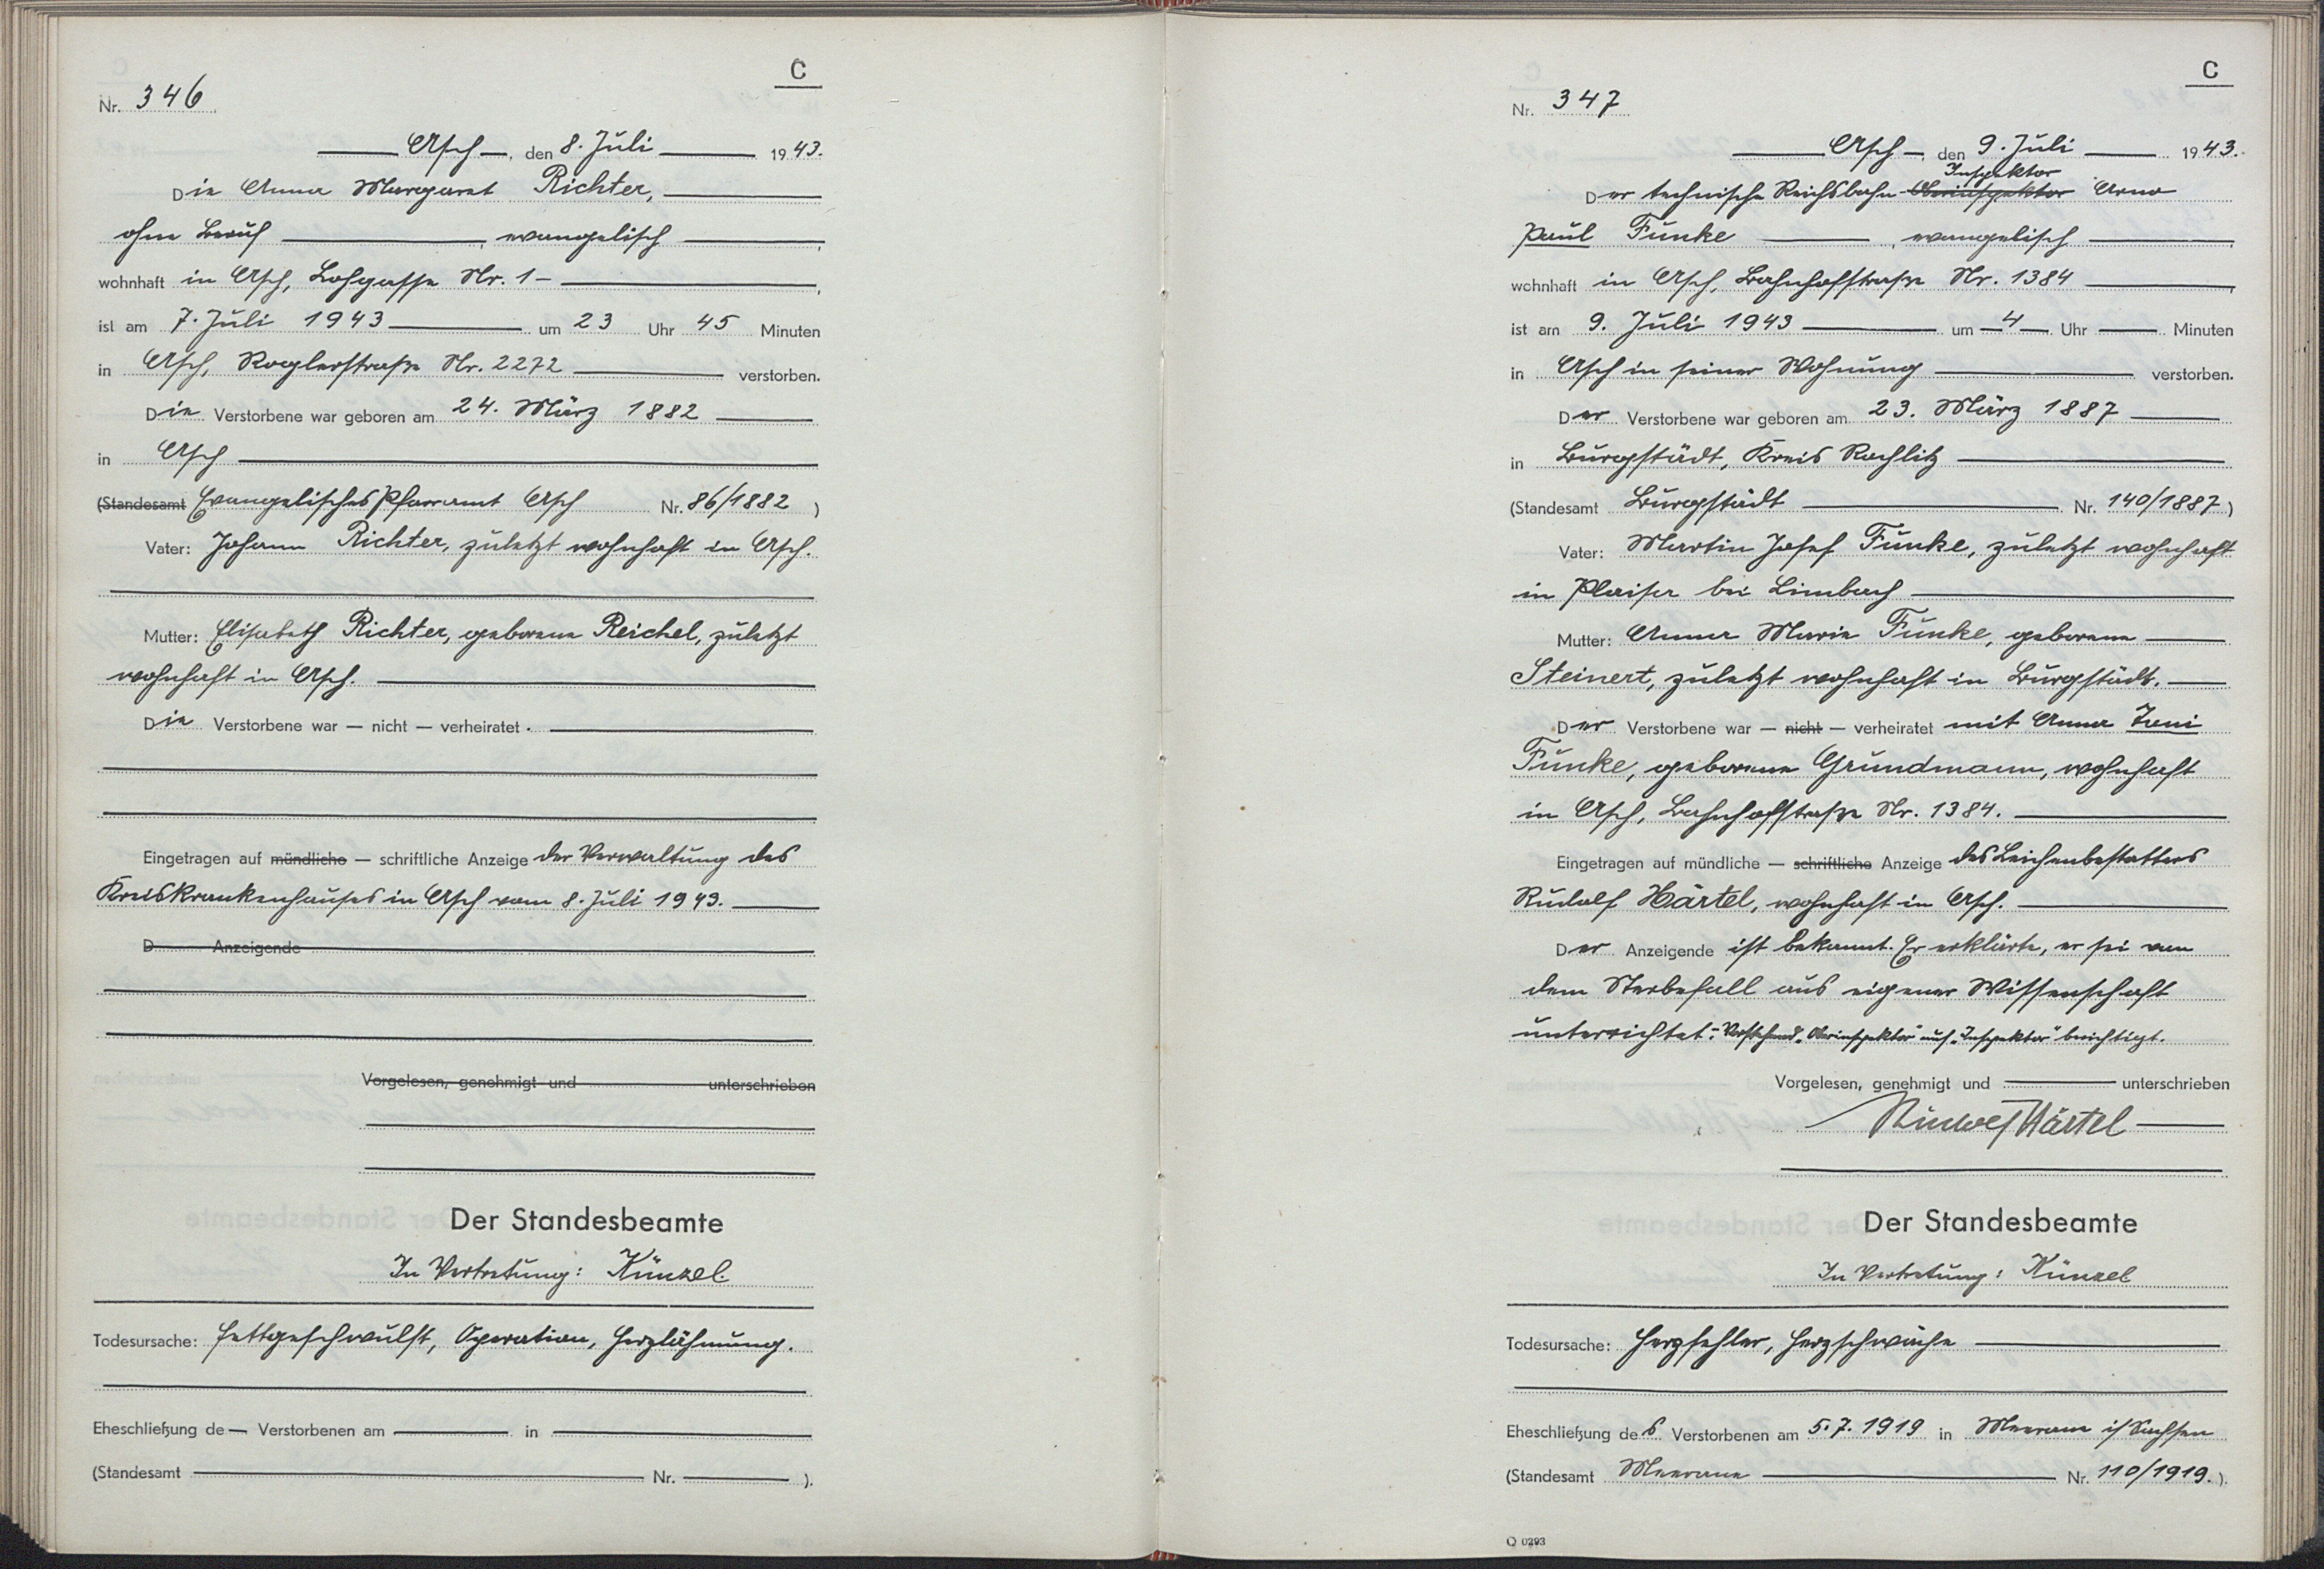 C
Nr. 346
Asch, den 8. Juli 1943.
Die Anna Margaret Richter,
ohne Beruf, evangelisch
wohnhaft in Asch, Lohgasse Nr. 1
ist am 7. Juli 1943 um 23 Uhr 45 Minuten
in Asch, Roglerstraße Nr. 2272 verstorben.
Die Verstorbene war geboren am 24. März 1882
in Asch
(Standesamt Evangelisches Pfarramt Asch Nr. 86/1882)
Vater: Johann Richter, zuletzt wohnhaft in Asch.
Mutter: Elisabeth Richter, geborene Reichel, zuletzt
wohnhaft in Asch.
Die Verstorbene war — nicht — verheiratet.
Eingetragen auf mündliche — schriftliche Anzeige der Verwaltung des
Kreiskrankenhauses in Asch vom 8. Juli 1943.
D Anzeigende
Vorgelesen, genehmigt und unterschrieben
Der Standesbeamte
In Vertretung: Künzel.
Todesursache: Fettgeschwulst, Operation, Herzlähmung.
Eheschließung de Verstorbenen am in
(Standesamt Nr. ).
C
Nr. 347
Asch, den 9. Juli 1943.
Inspektor
Der technische Reichsbahn-Oberinspektor Arno
Paul Funke, evangelisch
wohnhaft in Asch, Bahnhofstraße Nr. 1384,
ist am 9. Juli 1943 um 4 Uhr Minuten
in Asch in seiner Wohnung verstorben.
Der Verstorbene war geboren am 23. März 1887
in Burgstädt, Kreis Rochlitz
(Standesamt Burgstädt Nr. 140/1887)
Vater: Martin Josef Funke, zuletzt wohnhaft
in Pleißa bei Limbach
Mutter: Anna Marie Funke, geborene
Steinert, zuletzt wohnhaft in Burgstädt.
Der Verstorbene war — nicht — verheiratet mit Anna Toni
Funke, geborene Grundmann, wohnhaft
in Asch, Bahnhofstraße Nr. 1384.
Eingetragen auf mündliche — schriftliche Anzeige des Leichenbestatters
Rudolf Härtel, wohnhaft in Asch.
Der Anzeigende ist bekannt. Er erklärte, er sei von
dem Sterbefall aus eigener Wissenschaft
unterrichtet.- Vorstehend „Oberinspektor" auf „Inspektor" berichtigt.
Vorgelesen, genehmigt und unterschrieben
Rudolf Härtel
Der Standesbeamte
In Vertretung: Künzel
Todesursache: Herzfehler, Herzschwäche
Eheschließung des Verstorbenen am 5.7.1919 in Meerane i/Sachsen
(Standesamt Meerane Nr. 110/1919.).
Q 0293